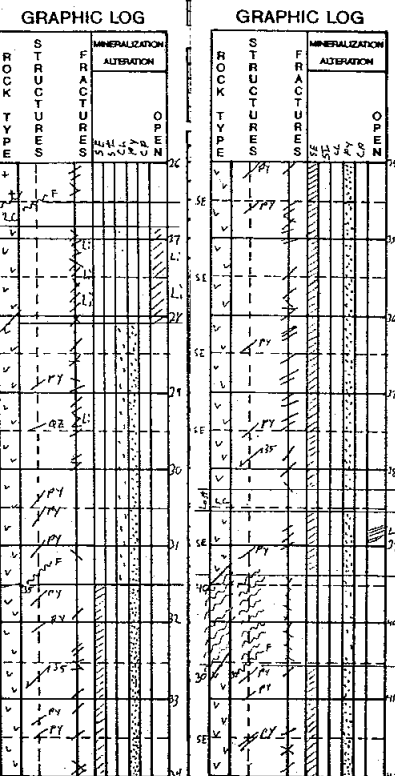 GRAPHIC LOG
ROCK TYPE
STRUCTURES
FRACTURES
MINERALIZATION
ALTERATION
SE
CL
PY
CP
OPEN
26
F
LC
27
Li
Li
Li
Li
Li
28
29
PY
QZ
Li
30
PY
PY
31
PY
F
35
PY
32
PY
35
33
PY
PY
GRAPHIC LOG
ROCK TYPE
STRUCTURES
FRACTURES
MINERALIZATION
ALTERATION
SE
CL
PY
CP
OPEN
PY
SE
PY
35
SE
36
SE
PY
37
SE
PY
35
38
LC
SE
PY
40
F
30
PY
PY
SE
PY